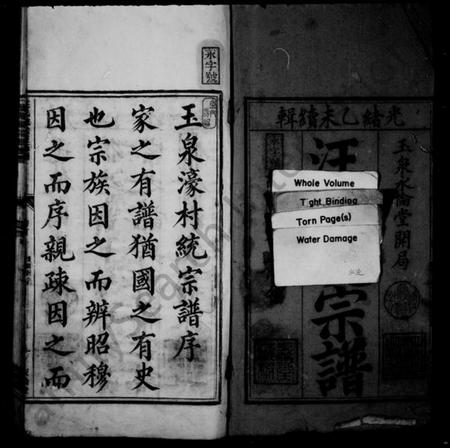 光緒乙未續輯
玉泉水僑堂開局
汪
宗譜
Whole Volume
Tight Binding
Torn Page(s)
Water Damage
永字號
玉泉濠村統宗譜序
家之有譜猶國之有史
也宗族因之而辨昭穆
因之而序親疎因之而